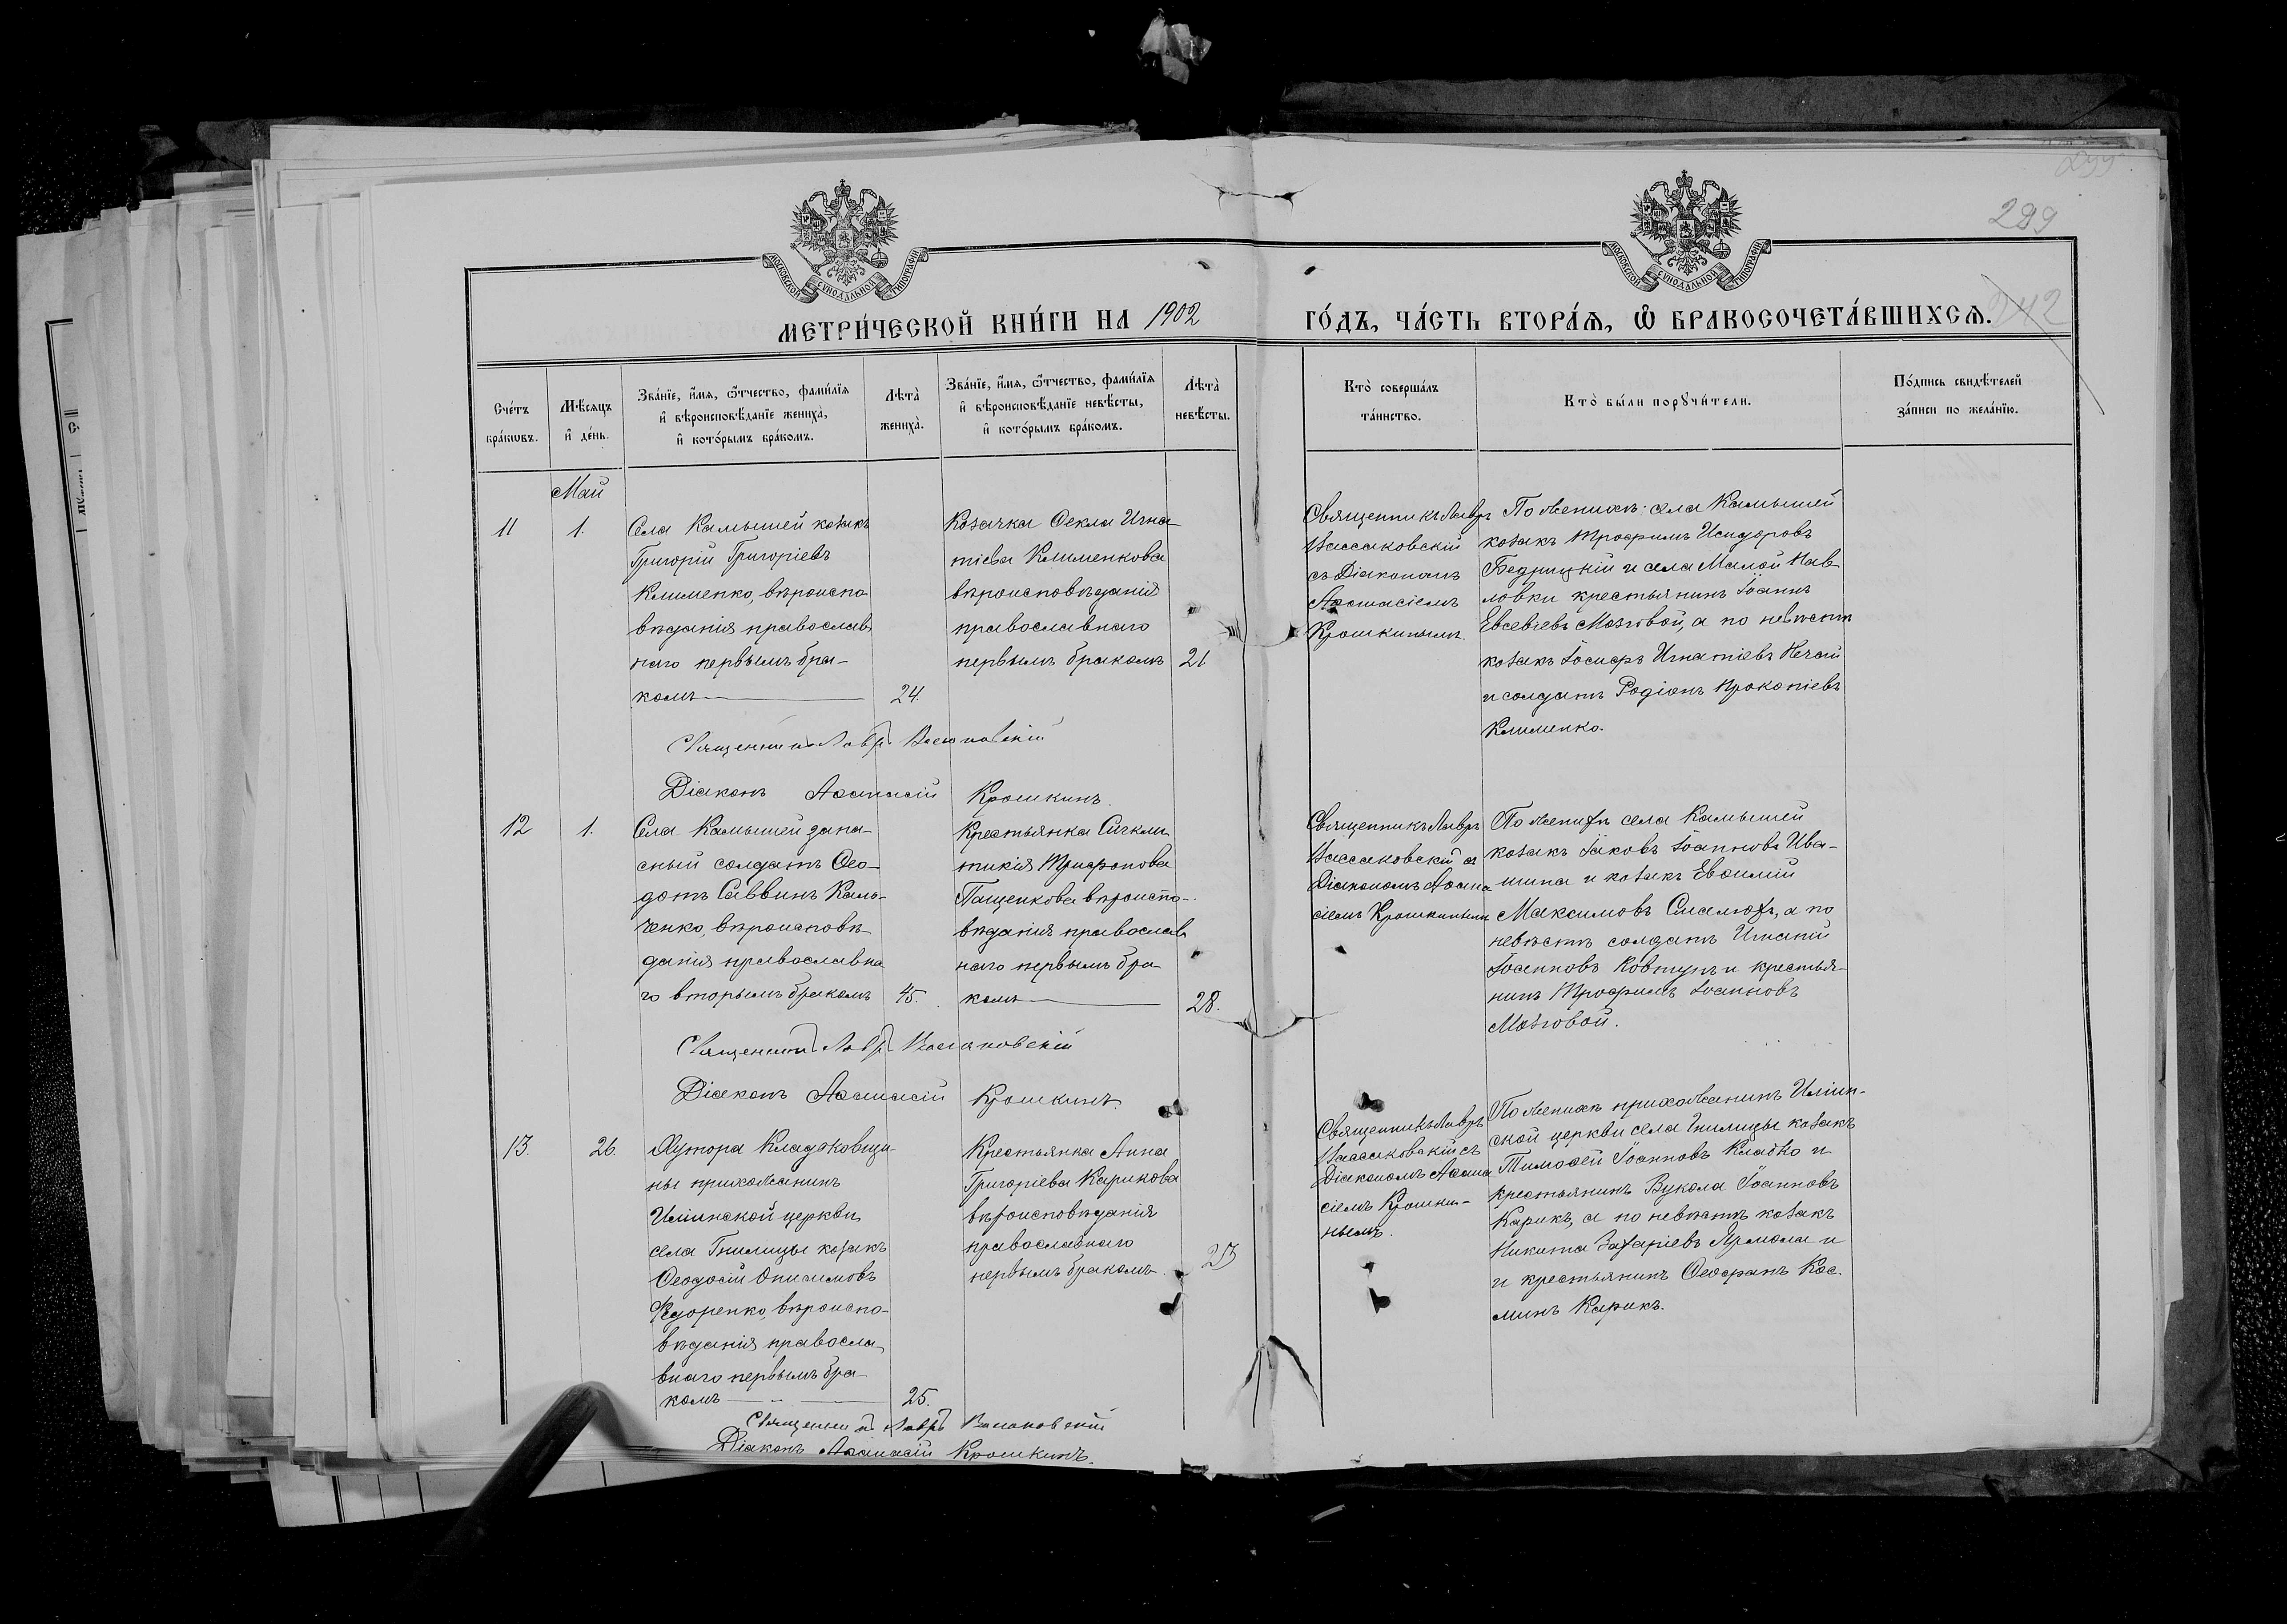 299
299
МОСКОВСКОЙ СѴНОДАЛЬНОЙ ТИПОГРАФІИ
МОСКОВСКОЙ СѴНОДАЛЬНОЙ ТИПОГРАФІИ
МЕТРИ́ЧЕСКОЙ КНИ́ГИ НА 1902 ГО́ДЪ, ЧА́СТЬ ВТОРА́Ѧ, Ѽ БРАКОСОЧЕТА́ВШИХСѦ.
142
Сче́тъ
бра́кѡвъ.
Мѣ́сѧцъ
и҆ де́нь.
Зва́нїе, и҆́мѧ, ѻ҆́тчество, фами́лїѧ
и҆ вѣроисповѣ́данїе жениха̀,
и҆ кото́рымъ бра́комъ.
Лѣ́та
жениха̀.
Зва́нїе, и҆́мѧ, ѻ҆́тчество, фами́лїѧ
и҆ вѣроисповѣ́данїе невѣ́сты,
и҆ кото́рымъ бра́комъ.
Лѣ́та
невѣ́сты.
Кто̀ соверша́лъ
та́инство.
Кто̀ бы́ли порꙋчи́тели.
По́дпись свидѣ́телей
за́писи по жела́нїю.
Май
11
1.
Села Камышей козакъ
Григорій Григоріевъ
Клименко, вѣроиспо
вѣданія православ
наго первымъ бра-
комъ
24.
Козачка Ѳекла Игна
тіева Клименкова
вѣроисповѣданія
православнаго
первымъ бракомъ
21
Священникъ Лавръ
Вассаковскій
съ Діакономъ
Аѳанасіемъ
Крошкинымъ.
По женихѣ: села Камышей
козакъ Трофимъ Исидоровъ
Бедрицкій и села Малой Пав-
ловки крестьянинъ Іоаннъ
Евсевіевъ Мозговой, а по невѣстѣ
козакъ Іосифъ Игнатіевъ Нечай
и солдатъ Родіонъ Прокопіевъ
Клименко.
Священникъ Лавръ Вассаковскій
Діаконъ Аѳанасій Крошкинъ.
12
1.
Села Камышей запа-
сный солдатъ Ѳео-
дотъ Саввинъ Каль-
ченко, вѣроисповѣ-
данія православна
го вторымъ бракомъ
45.
Крестьянка Сигкли
тикія Трифонова
Пащенкова вѣроиспо-
вѣданія православ
наго первымъ бра-
комъ
28.
Священникъ Лавръ
Вассаковскій съ
Діакономъ Аѳана
сіемъ Крошкинымъ
По женихѣ села Камышей
козакъ Іаковъ Іоанновъ Ива-
шина и козакъ Евѳимій
Максимовъ Смалюхъ, а по
невѣстѣ солдатъ Игнатій
Іоанновъ Ковтунъ и крестья-
нинъ Трофимъ Іоанновъ
Мозговой.
Священникъ Лавръ Вассаковскій
Діаконъ Аѳанасій Крошкинъ.
13.
26.
Хутора Кладьковщи-
ны прихожанинъ
Иліинской церкви
села Гнилицы козакъ
Ѳеодосій Онисимовъ
Ѳедоренко, вѣроиспо-
вѣданія правосла
внаго первымъ бра-
комъ
25.
Крестьянка Анна
Григоріева Карикова
вѣроисповѣданія
православнаго
первымъ бракомъ.
23
Священникъ Лавръ
Вассаковскій съ
Діакономъ Аѳана
сіемъ Крошки-
нымъ.
По женихѣ прихожанинъ Иліин-
ской церкви села Гнилицы козакъ
Тимоѳей Іоанновъ Кладько и
крестьянинъ Вукола Іоанновъ
Карикъ, а по невѣстѣ козакъ
Никита Захаріевъ Ярмола и
и крестьянинъ Ѳеофанъ Кос.
минъ Карикъ.
Священникъ Лавръ Вассаковскій
Діаконъ Аѳанасій Крошкинъ.